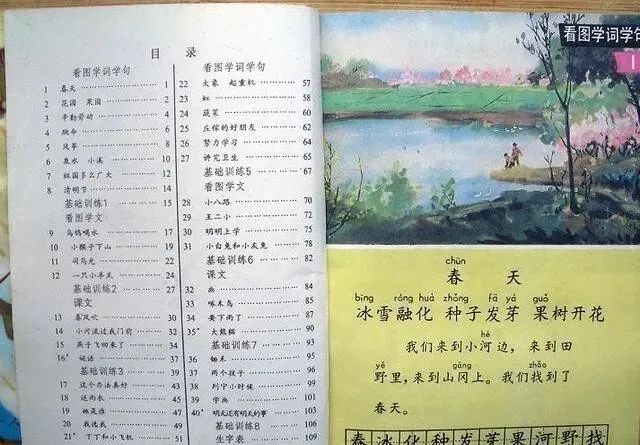 目 录
看图学词学句
1 春天 1
2 花园 果园 2
3 辛勤劳动 3
4 融命 4
5 风筝 5
6 泉水 小溪 6
7 祖国多么广大 7
8 清明节 8
基础训练1 15
看图学文
9 乌鸦喝水 17
10 小猴子下山 19
11 司马光 21
12 一只小羊羔 24
基础训练2 27
课文
13 春风吹 31
14 小河流过我门前 32
15 燕子飞回来了 34
16* 谜语 37
基础训练3 39
17 这个办法真好 43
18 送雨衣 45
19 她是谁 47
20 我选我 49
21* 丁丁和小飞机 51
看图学词学句
22 大象 起重机 57
23 虹 58
24 蔬菜 60
25 庄稼的好朋友 62
26 努力学习 64
27 讲究卫生 65
基础训练5 67
看图学文
28 小八路 70
29 王二小 72
30 明明上学 75
31 小白兔和小灰兔 78
基础训练6 82
课文
32 画 84
33 啄木鸟 85
34 要下雨了 87
35* 大熊猫 90
基础训练7 93
36 锄禾 96
37 两个孩子 96
38 列宁小时候 98
39 学画 101
40* 明天还有明天的事 103
基础训练8 106
生字表 109
看图学词学句
1
chūn
春 天
bīng róng huà zhǒng fā yá guǒ
冰雪融化 种子发芽 果树开花
hé
我们来到小河边，来到田
yě gāng zhǎo
野里，来到山冈上。我们找到了
春天。
春 冰 化 种 发 芽 果 河 野 找